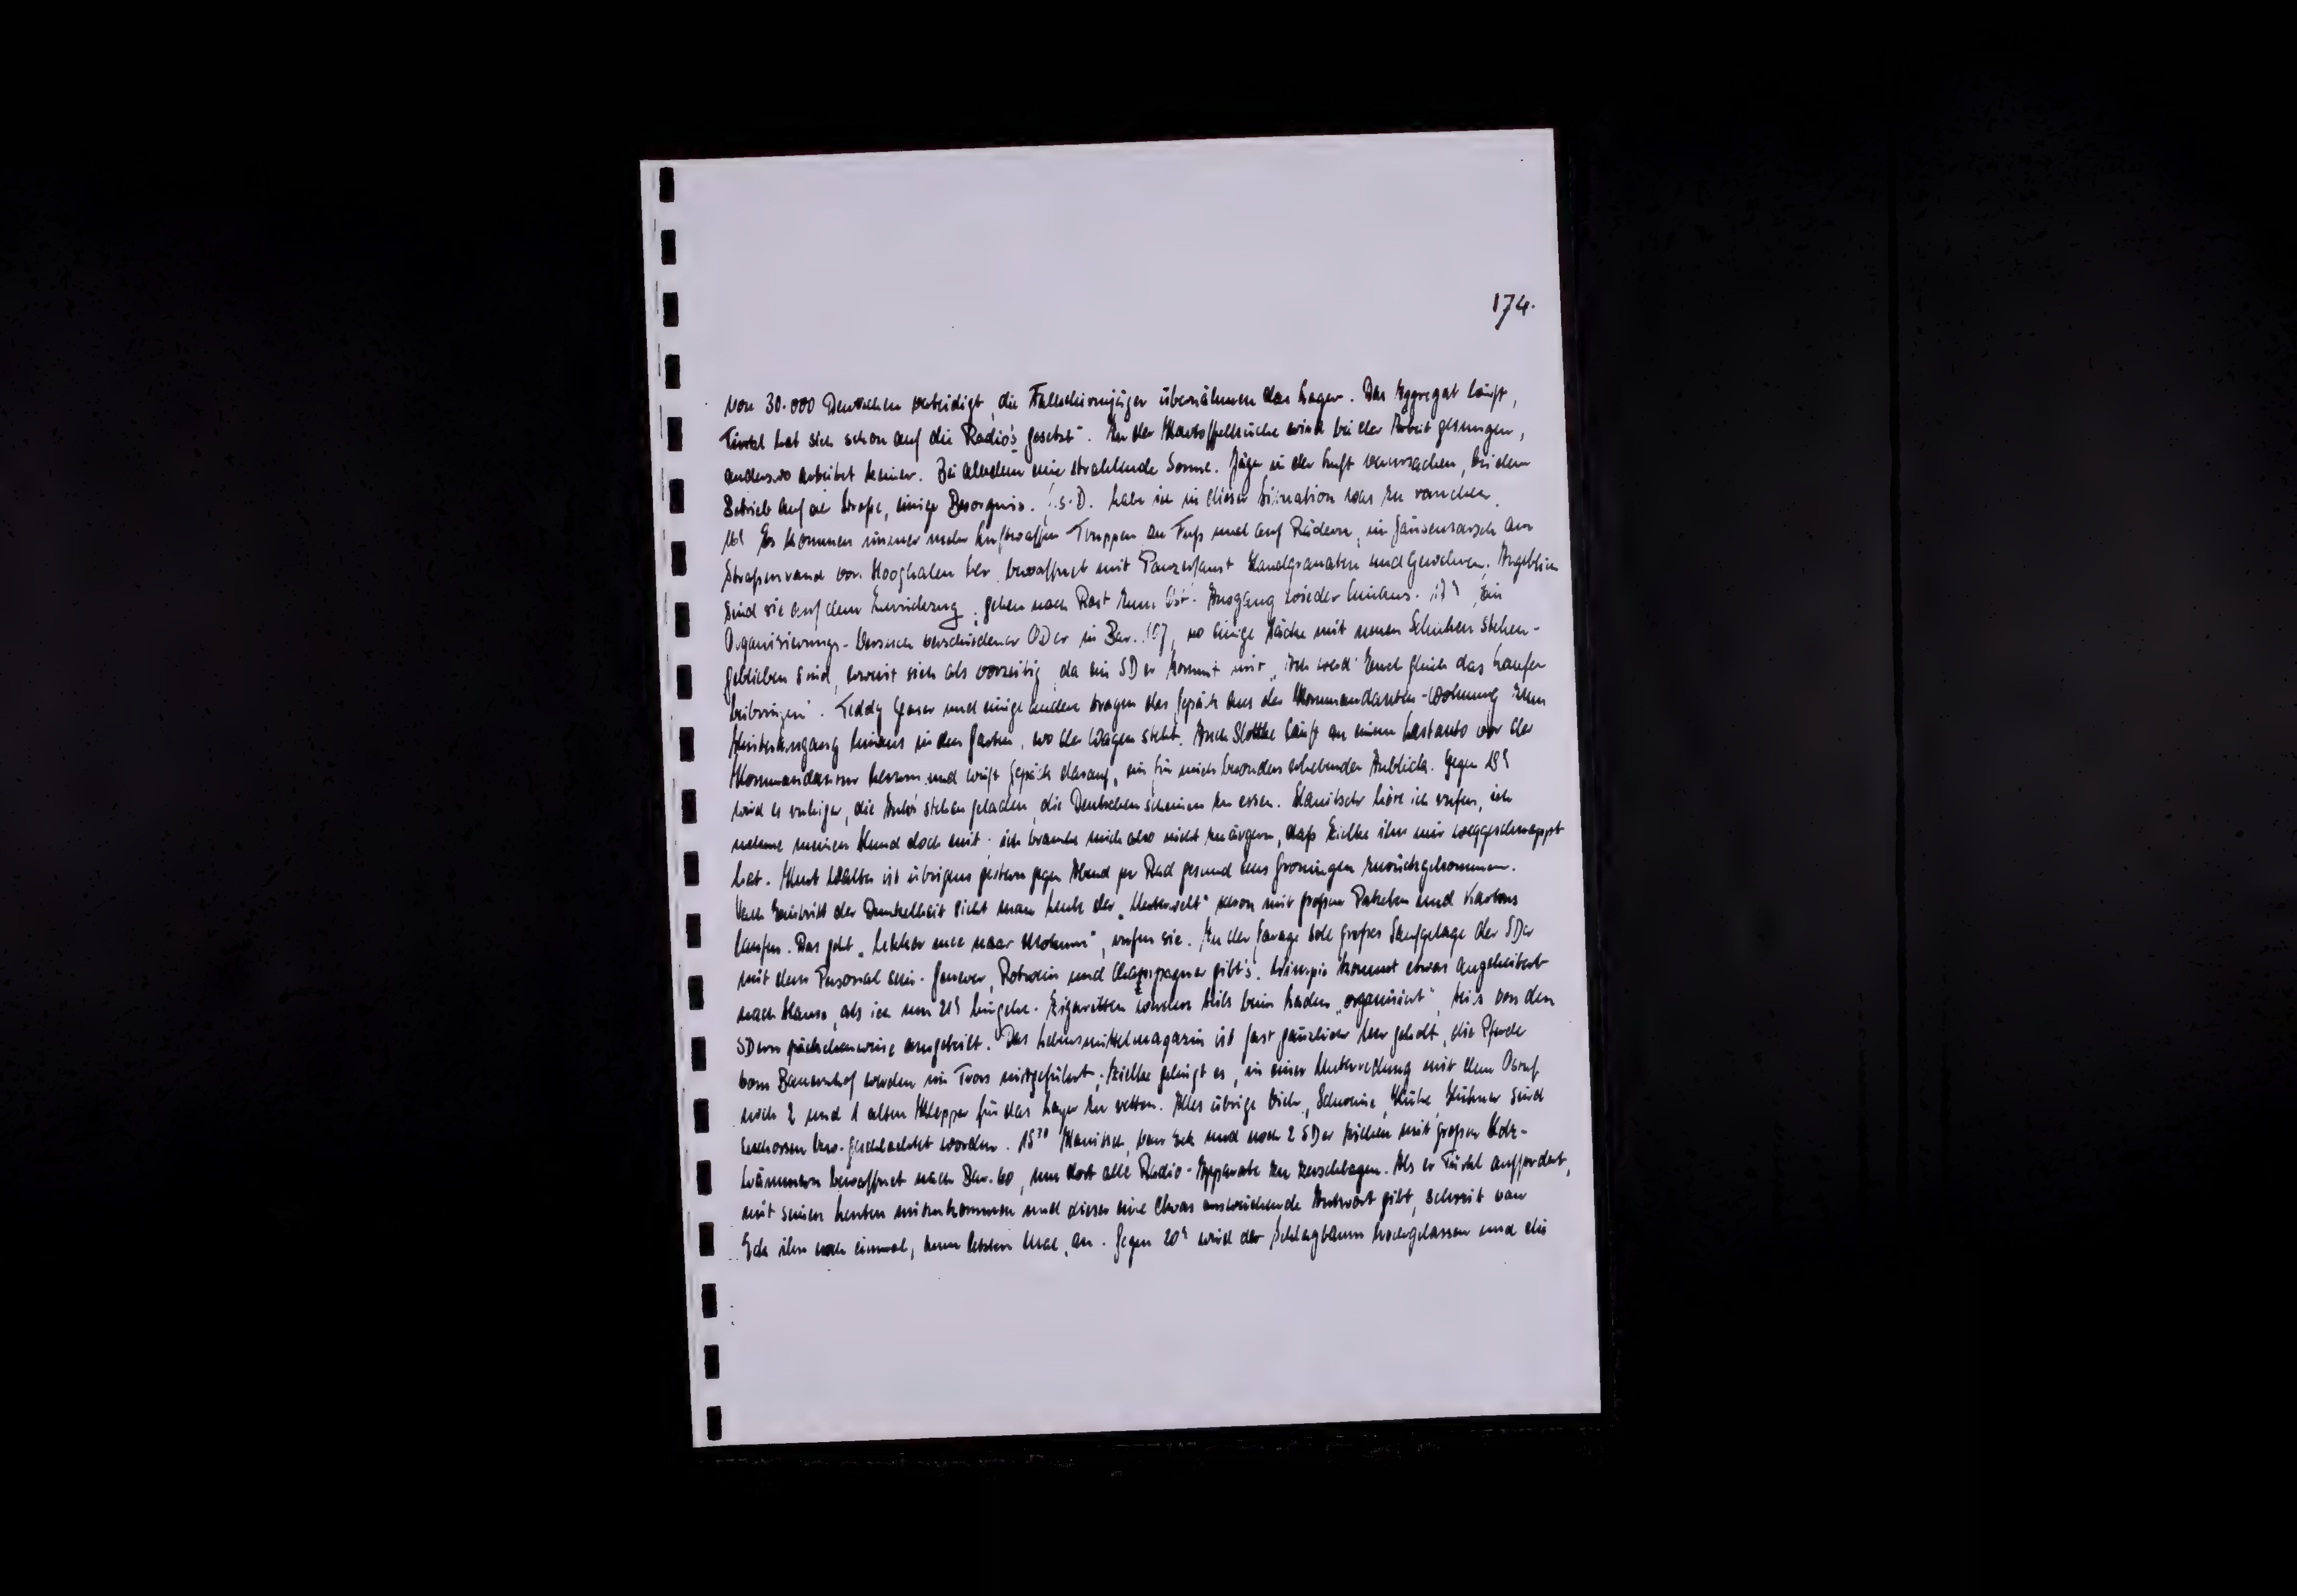 174.
von 30.000 Deutschen verteidigt, die Fallschirmjäger übernähmen das Lager. Das Aggregat läuft,
Türkel hat sich schon auf die Radio's „gesetzt“. In der Kartoffelküche wird bei der Arbeit gesungen,
anderswo arbeitet keiner. Bei alledem eine strahlende Sonne. Jäger in der Luft verursachen, bei dem
Betrieb auf der Straße, einige Besorgnis. G.s.D. habe ich in dieser Situation was zu rauchen.
16h Es kommen immer mehr Luftwaffen-Truppen zu Fuß und auf Rädern, im Gänsemarsch am
Straßenrand von Hooghalen her, bewaffnet mit Panzerfaust Handgranaten und Gewehren. Angeblich
sind sie auf dem Rückzug, gehen nach Rast zum Ost-Ausgang wieder hinaus. 17h Ein
Organisierungs-Versuch verschiedener ODer in Bar. 107, wo einige Säcke mit neuen Schuhen stehen-
geblieben sind, erweist sich als vorzeitig, da ein SDer kommt mit „ich werd' Euch gleich das Laufen
beibringen“. Teddy und einige andere tragen das Gepäck aus der Kommandanten-Wohnung zum
Hinterausgang hinaus in den Garten, wo der Wagen steht. Auch läuft an einem Lastauto vor der
Kommandantur herum und wirft Gepäck darauf, ein für mich besonders erhebender Anblick. Gegen 18h
wird es ruhiger, die Auto's stehen geladen, die Deutschen scheinen zu essen. höre ich rufen, ich
nehme meinen Hund doch mit; ich brauche mich also nicht zu ärgern, daß Zielke ihn mir weggeschnappt
hat. Kurt Walter ist übrigens gestern gegen Abend per Rad gesund aus Groningen zurückgekommen.
Nach Eintritt der Dunkelheit sieht man Leute der „Unterwelt“ schon mit großen Paketen und Kartons
laufen. Das geht „lekker mee naar Mokum“, rufen sie. In der Garage soll großes Saufgelage der SDer
mit dem Personal sein. Genever, Rotwein und Champagner gibt's. kommt etwas angeheitert
nach Hause, als ich um 21h hingehe. Zigaretten werden teils beim Laden „organisiert“, teils von den
SDern päckchenweise ausgeteilt. Das Lebensmittelmagazin ist fast gänzlich leer geholt, die Pferde
vom Bauernhof werden im Tross mitgeführt; Zielke gelingt es, in einer Unterredung mit dem
noch 2 und 1 alten Klepper für das Lager zu retten. Alles übrige Vieh, Schweine, Kühe, Hühner sind
erschossen bzw. geschlachtet worden. 1830 van Eck und noch 2 SDer ziehen mit großen Holz-
hämmern bewaffnet nach Bar. 60, um dort alle Radio-Apparate zu zerschlagen. Als er Türkel auffordert,
mit seinen Leuten mitzukommen und dieser eine etwas ausweichende Antwort gibt, schreit van
Eck ihn noch einmal, zum letzten Mal, an. Gegen 20h wird der Schlagbaum hochgelassen und die